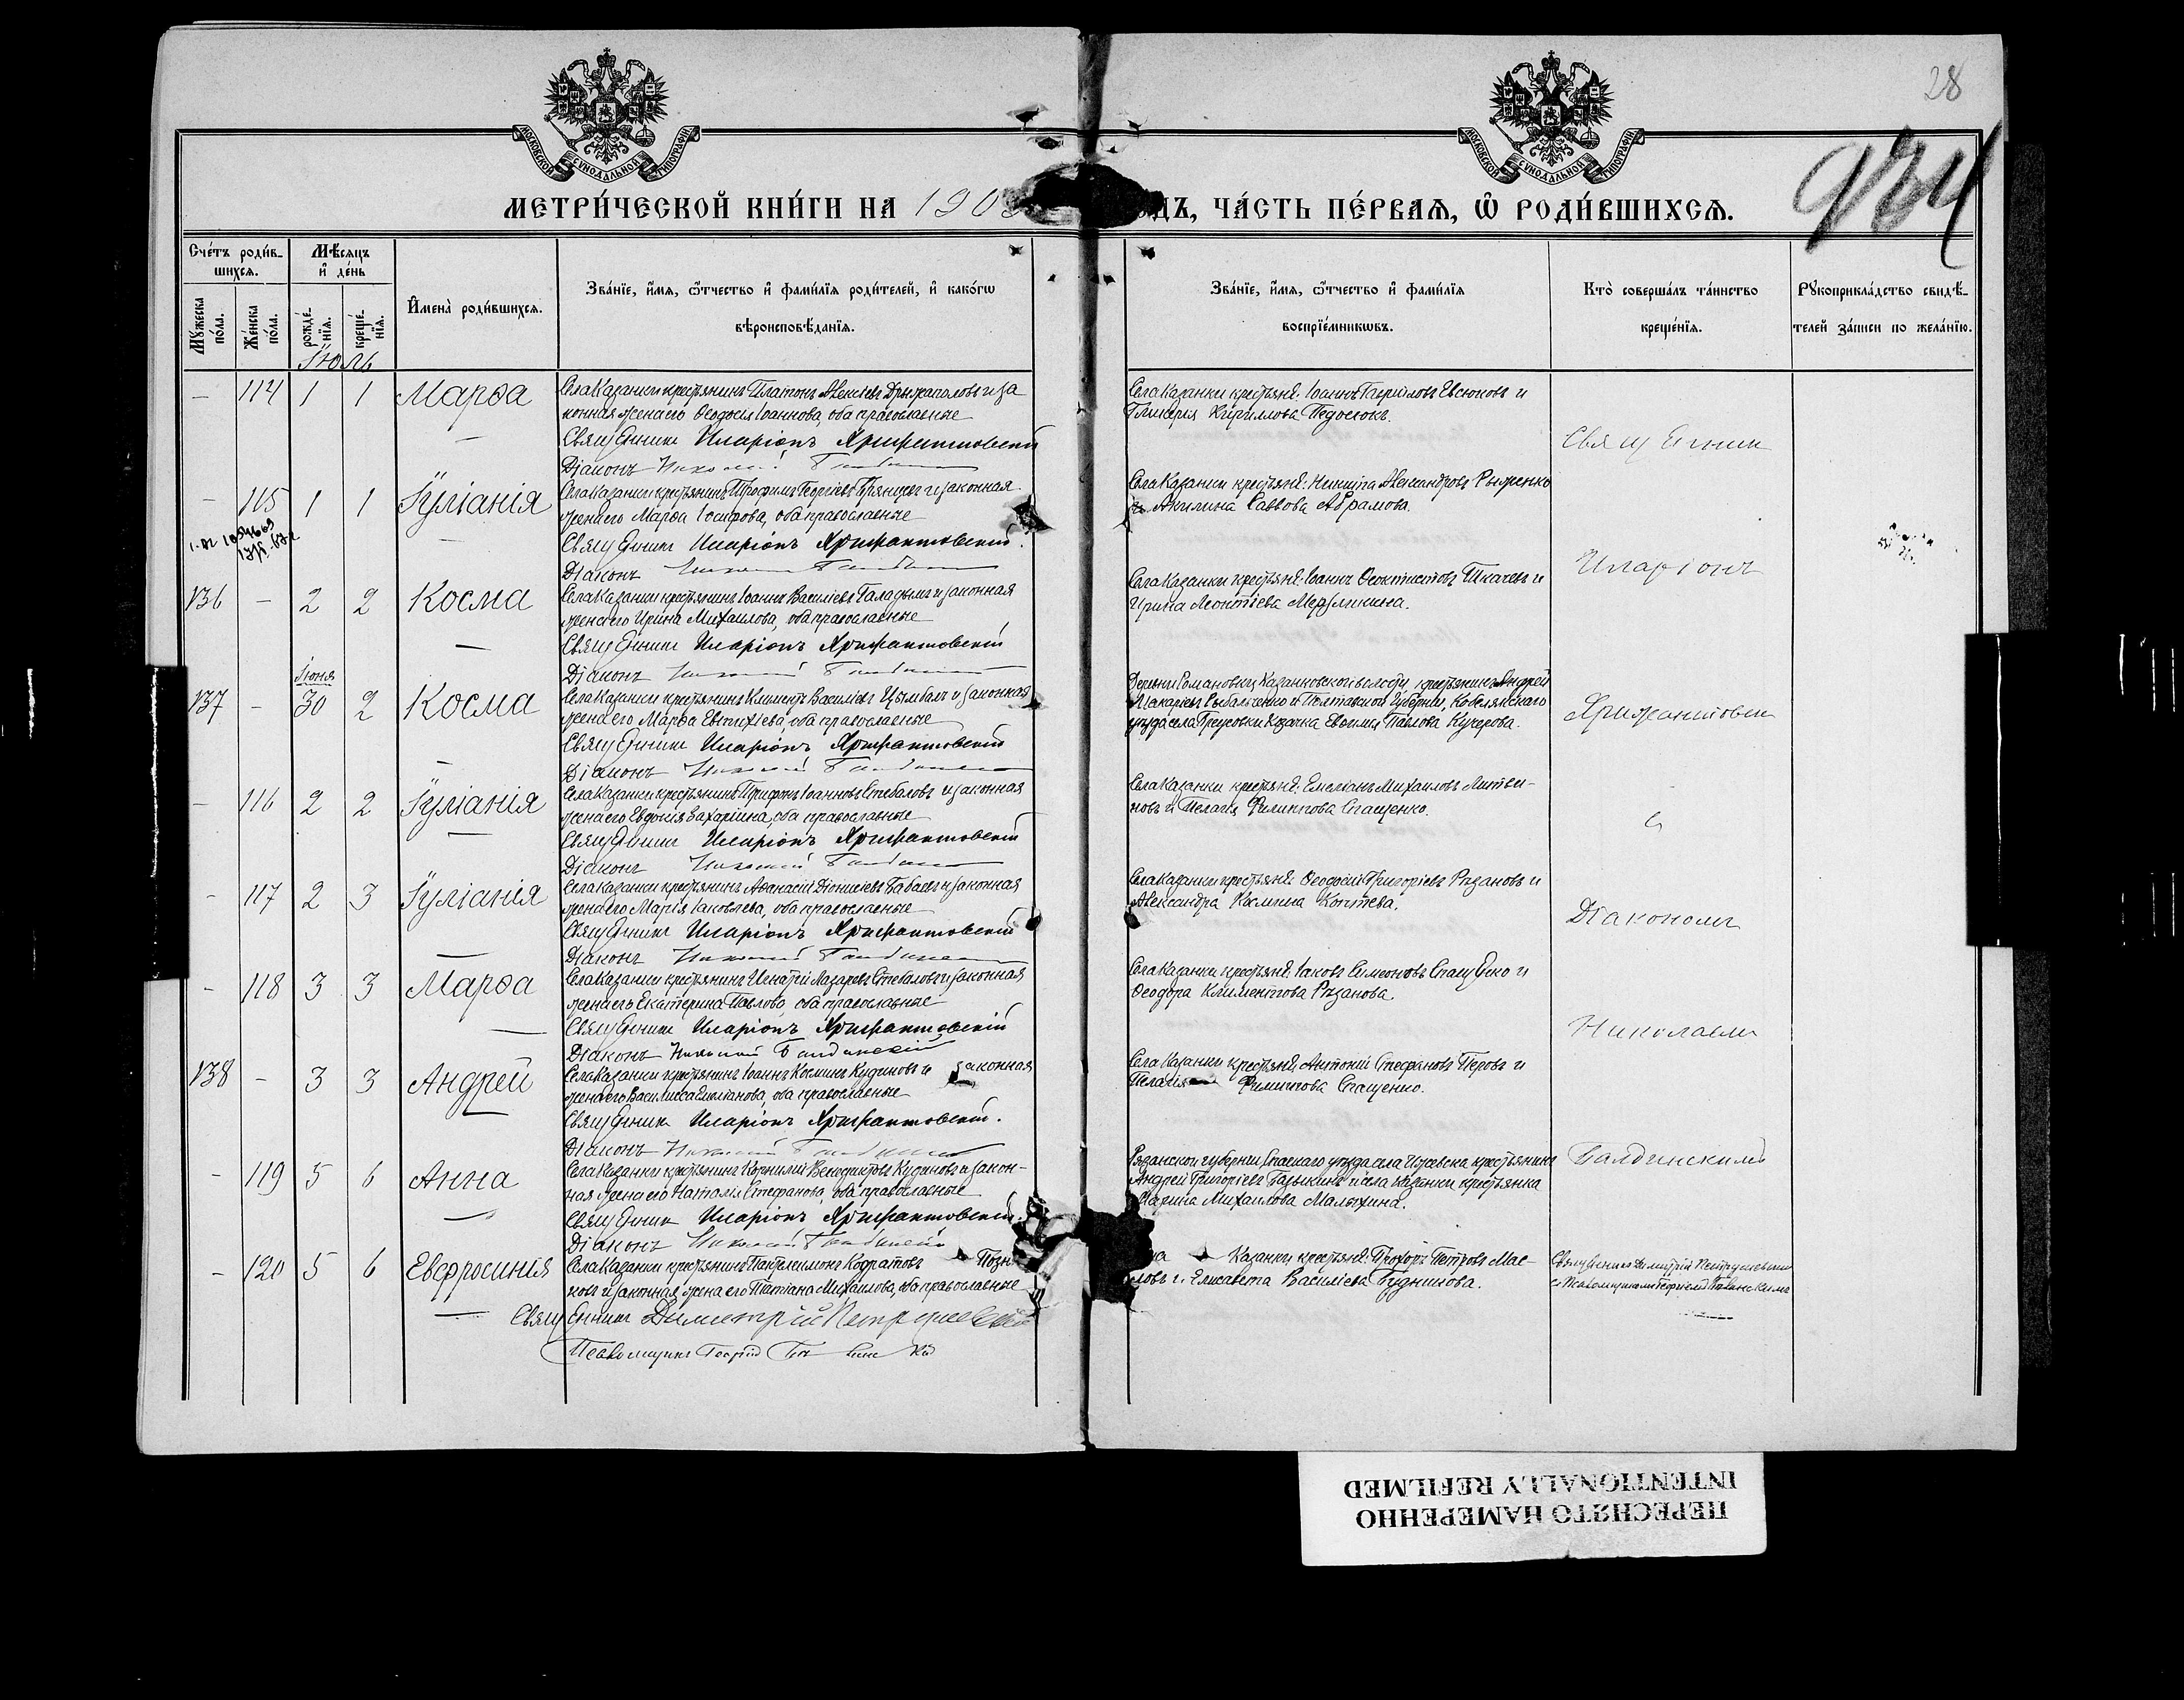 28
924
МОСКОВСКОЙ СУНОДАЛЬНОЙ ТИПОГРАФІИ
МОСКОВСКОЙ СУНОДАЛЬНОЙ ТИПОГРАФІИ
МЕТРИ́ЧЕСКОЙ КНИ́ГИ НА 190
ДЪ, ЧА́СТЬ ПЕ́РВАѦ, Ѽ РОДИ́ВШИХСѦ.
Сче́тъ роди́в-
шихсѧ.
Мѣ́сяцъ
и҆ де́нь
Мꙋ́жеска
по́ла.
Же́нска
по́ла.
рожде́-
нїѧ.
креще́-
нїѧ.
И҆мена̀ роди́вшихсѧ.
Зва́нїе, и҆́мѧ, ѻ҆́тчество и҆ фами́лїѧ роди́телей, и҆ како́гѡ
вѣроисповѣ́данїѧ.
Зва́нїе, и҆́мѧ, ѻ҆́тчество и҆ фами́лїѧ
воспрїе́мникѡвъ.
Кто̀ соверша́лъ та́инство
креще́нїѧ.
Рꙋкоприкла́дство свидѣ́-
телей за́писи по жела́нїю.
Іюль
— 114 1 1 Марѳа
Села Казанки крестьянинъ Платонъ Алексіевъ и за
конная жена его Ѳеодосія Іоаннова, оба православные
Священникъ Иларіонъ Крижантовскій
Діаконъ Николай
Села Казанки крестьяне: Іоаннъ Гавриловъ Евсюковъ и
Гликерія Кирилова
Священник
— 115 1 1 Іуліанія
Села Казанки крестьянинъ Трофимъ Георгіевъ Брянцевъ и законная
жена его Марѳа Іосифова, оба православные
Священникъ Иларіонъ Крижантовскій.
Діаконъ
Села Казанки крестьяне: Никита Александровъ Рыженко
и Акилина Саввова Абрамова.
Иларіонъ
136 — 2 2 Косма
Села Казанки крестьянинъ Іоаннъ Василіевъ Галадымъ и законная
жена его Ирина Михаилова, оба православные
Священникъ Иларіонъ Крижантовскій
Діаконъ
Села Казанки крестьяне: Іоаннъ Ѳеоктистовъ Ткачевъ и
Ирина Леонтіева
Іюня
137 — 30 2 Косма
Села Казанки крестьянинъ Климентъ Василіевъ Цымбалъ и законная
жена его Марѳа Евтихіева, оба православные
Священникъ Иларіонъ Крижантовскій
Діаконъ
Деревни Романовки, Казанковской волости, крестьянинъ Андрей
Макаріевъ Рыбалченко и Полтавской Губерніи, Кобелякскаго
уезда села козачка Евѳимія Павлова Кучерова.
Крижантовск
— 116 2 2 Іуліанія
Села Казанки крестьянинъ Трифонъ Іоанновъ Стебаловъ и законная
жена его Евдокія Захаріина, оба православные
Священникъ Иларіонъ Крижантовскій
Діаконъ
Села Казанки крестьяне: Емеліанъ Михаиловъ Литви-
новъ и Пелагія Филиппова Спащенко.
съ
— 117 2 3 Іуліанія
Села Казанки крестьянинъ Аѳанасій Діонисіевъ Бабаевъ и законная
жена его Марія Іаковлева, оба православные
Священникъ Иларіонъ Крижантовскій
Діаконъ
Села Казанки крестьяне: Ѳеодосій Григоріевъ Рязановъ и
Александра Космина Коптева.
Діакономъ
— 118 3 3 Марѳа
Села Казанки крестьянинъ Игнатій Лазаревъ Стебаловъ и законная
жена его Екатерина Павлова, оба православные
Священникъ Иларіонъ Крижантовскій
Діаконъ Николай Балдинскій
Села Казанки крестьяне: Іаковъ Симеоновъ Спащенко и
Ѳеодора Климентова Рязанова.
Николаемъ
138 — 3 3 Андрей
Села Казанки крестьянинъ Іоаннъ Косминъ Кудиновъ и законная
жена его Василисса Емеліанова, оба православные
Священникъ Иларіонъ Крижантовскій.
Діаконъ
Села Казанки крестьяне: Антоній Стефановъ Перовъ и
Пелагія Филиппова Спащенко.
— 119 5 6 Анна
Села Казанки крестьянинъ Корнилій Венедиктовъ Кудиновъ и закон-
ная жена его Наталія Стефанова, оба православные
Священникъ Иларіонъ Крижантовскій.
Діаконъ
Рязанской губерніи Спасскаго уезда села Ижевска крестьянинъ
Андрей Григоріевъ и села Казанки крестьянка
Марина Михаилова Малыхина.
Балдинскимъ
— 120 5 6 Евфросинія
Села Казанки крестьянинъ Пантелеимонъ Кодратовъ Позня
ковъ и законная жена его Татіана Михаилова, оба православные
Священникъ Димитрій
Псаломщикъ Георгій
Казанки крестьяне: Прохоръ Петровъ Мас-
ловъ и Елисавета Василіева Гудникова.
Священникъ Димитрій
съ Псаломщикомъ Георгіемъ
ПЕРЕСНЯТО НАМЕРЕННО
INTENTIONALLY REFILMED